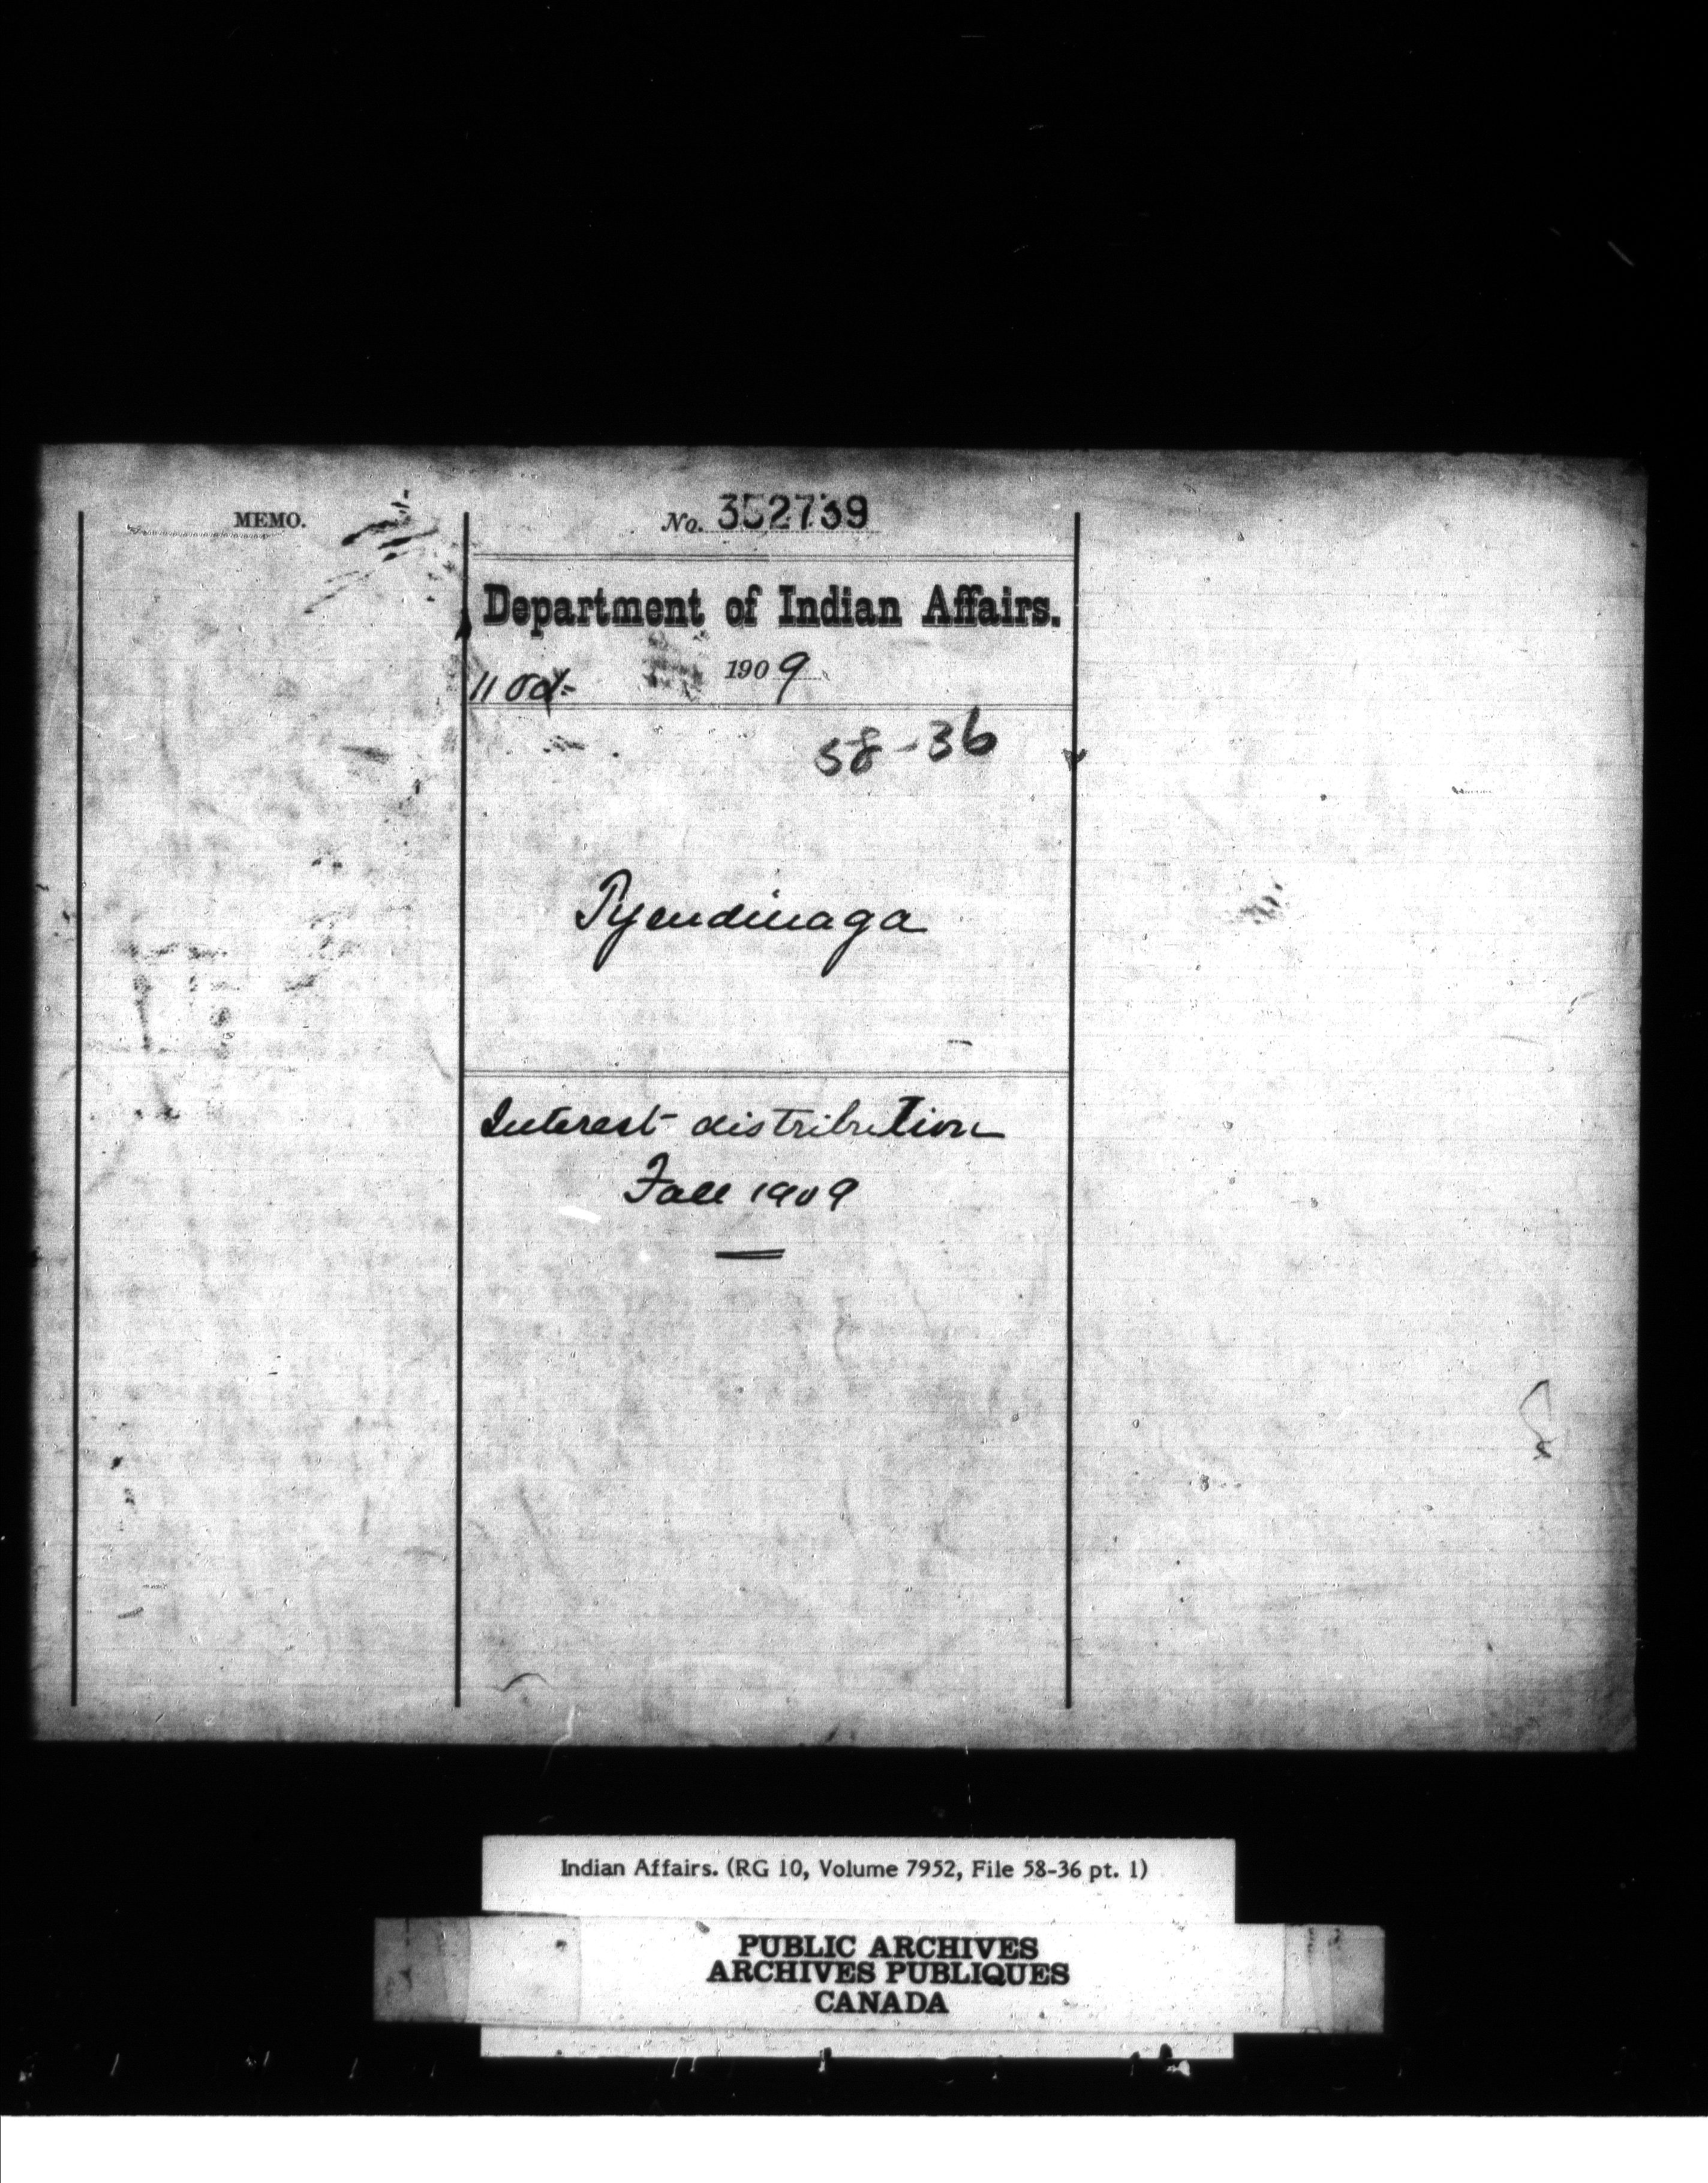 MEMO.
No. 352739
Department of Indian Affairs.
11 Oct- 1909
58-36
Tyendinaga
Interest distribution
Fall 1909
Indian Affairs. (RG 10, Volume 7952, File 58-36 pt. 1)
PUBLIC ARCHIVES
ARCHIVES PUBLIQUES
CANADA